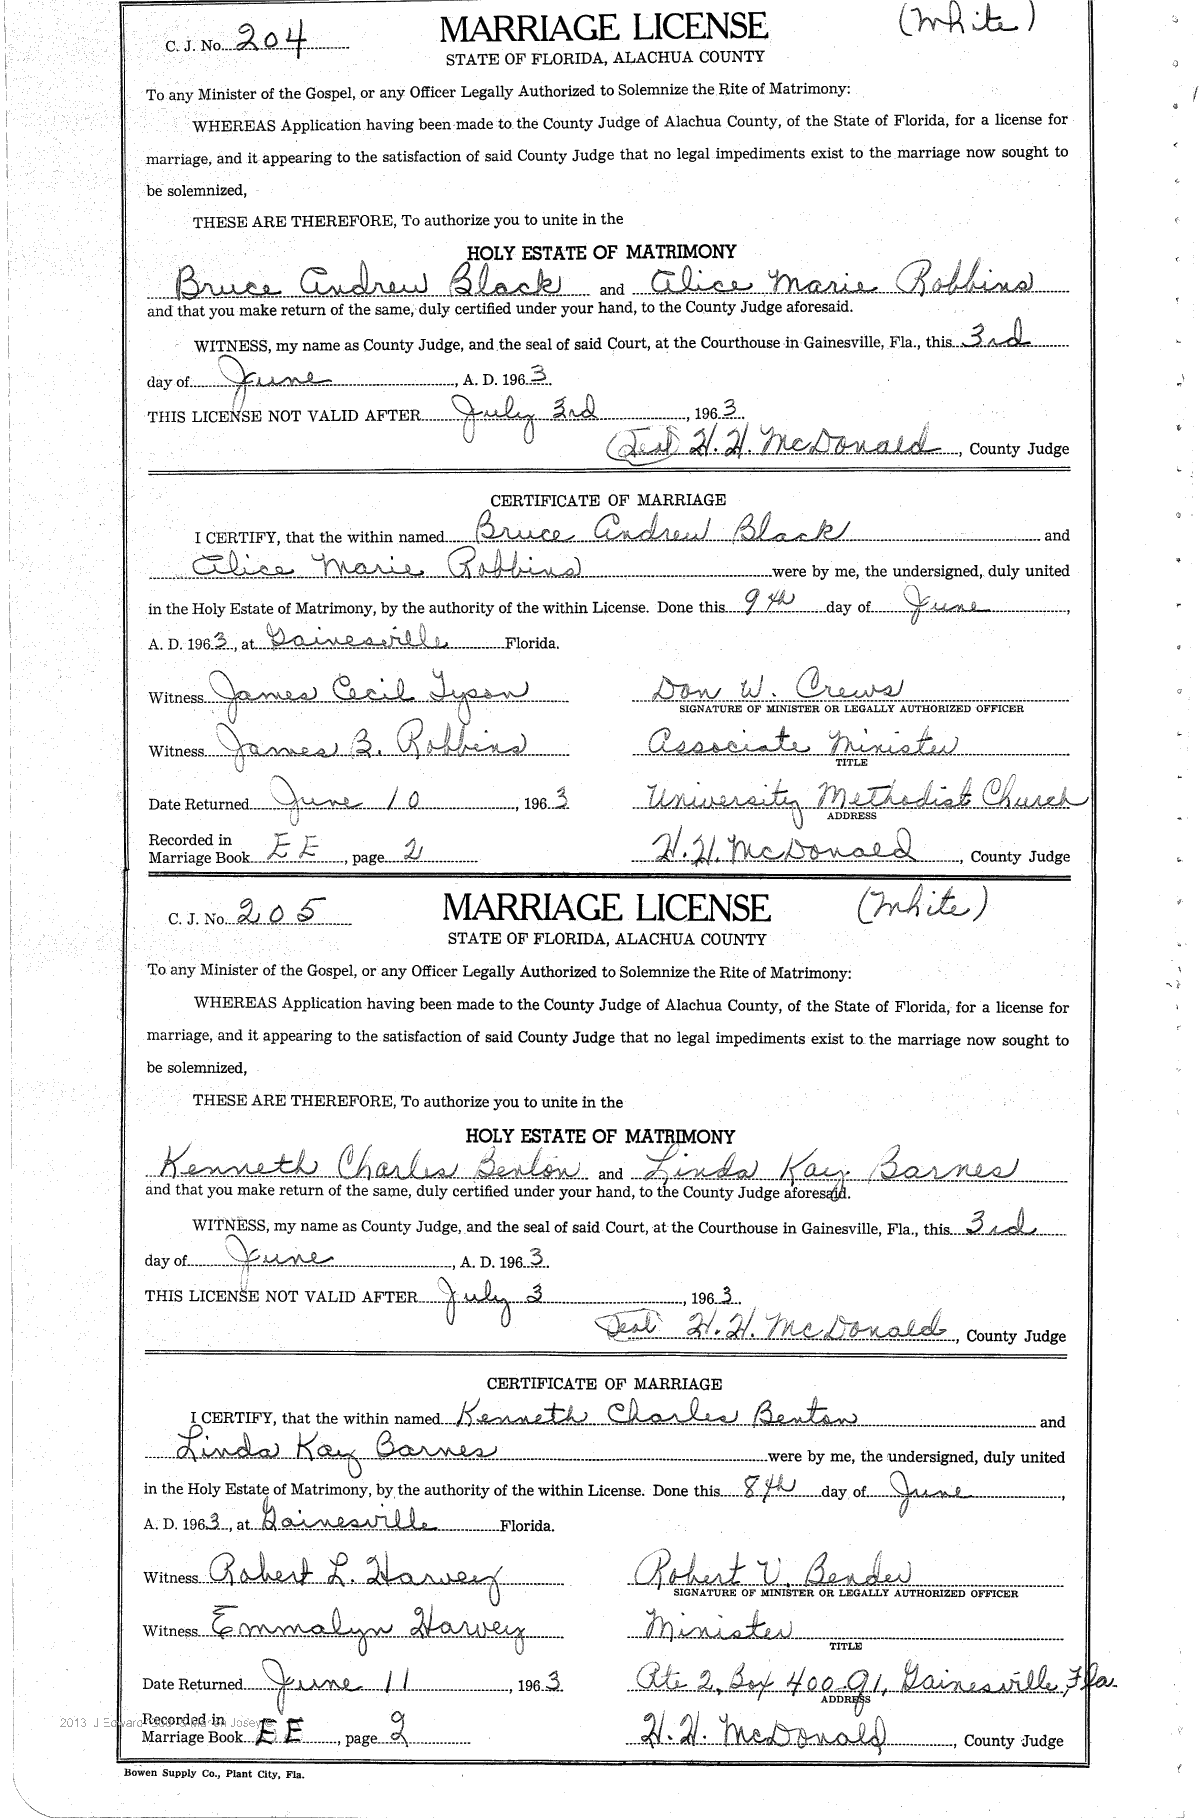 C. J. No. 204 MARRIAGE LICENSE (White)
STATE OF FLORIDA, ALACHUA COUNTY
To any Minister of the Gospel, or any Officer Legally Authorized to Solemnize the Rite of Matrimony:
WHEREAS Application having been made to the County Judge of Alachua County, of the State of Florida, for a license for
marriage, and it appearing to the satisfaction of said County Judge that no legal impediments exist to the marriage now sought to
be solemnized,
THESE ARE THEREFORE, To authorize you to unite in the
HOLY ESTATE OF MATRIMONY
Bruce Andrew Black and Alice Marie Robbins
and that you make return of the same, duly certified under your hand, to the County Judge aforesaid.
WITNESS, my name as County Judge, and the seal of said Court, at the Courthouse in Gainesville, Fla., this 3rd
day of June, A. D. 1963.
THIS LICENSE NOT VALID AFTER July 3rd, 1963.
(Seal) H. H. McDonald, County Judge
CERTIFICATE OF MARRIAGE
I CERTIFY, that the within named Bruce Andrew Black and
Alice Marie Robbins were by me, the undersigned, duly united
in the Holy Estate of Matrimony, by the authority of the within License. Done this 9th day of June,
A. D. 1963, at Gainesville Florida.
Witness James Cecil Tyson Don W. Crews
SIGNATURE OF MINISTER OR LEGALLY AUTHORIZED OFFICER
Witness James B. Robbins Associate Minister
TITLE
Date Returned June 10, 1963 University Methodist Church
ADDRESS
Recorded in
Marriage Book EE, page 2 H. H. McDonald, County Judge
C. J. No. 205 MARRIAGE LICENSE (White)
STATE OF FLORIDA, ALACHUA COUNTY
To any Minister of the Gospel, or any Officer Legally Authorized to Solemnize the Rite of Matrimony:
WHEREAS Application having been made to the County Judge of Alachua County, of the State of Florida, for a license for
marriage, and it appearing to the satisfaction of said County Judge that no legal impediments exist to the marriage now sought to
be solemnized,
THESE ARE THEREFORE, To authorize you to unite in the
HOLY ESTATE OF MATRIMONY
Kenneth Charles Benton and Linda Kay Barnes
and that you make return of the same, duly certified under your hand, to the County Judge aforesaid.
WITNESS, my name as County Judge, and the seal of said Court, at the Courthouse in Gainesville, Fla., this 3rd
day of June, A. D. 1963.
THIS LICENSE NOT VALID AFTER July 3, 1963.
Seal H. H. McDonald, County Judge
CERTIFICATE OF MARRIAGE
I CERTIFY, that the within named Kenneth Charles Benton and
Linda Kay Barnes were by me, the undersigned, duly united
in the Holy Estate of Matrimony, by the authority of the within License. Done this 8th day of June,
A. D. 1963, at Gainesville Florida.
Witness Robert L. Harvey Robert V. Bender
SIGNATURE OF MINISTER OR LEGALLY AUTHORIZED OFFICER
Witness Emmalyn Harvey Minister
TITLE
Date Returned June 11, 1963 Rte 2, Box 400-91, Gainesville, Fla.
ADDRESS
2013 J Edward
Recorded in
Marriage Book EE, page 2 H. H. McDonald, County Judge
Bowen Supply Co., Plant City, Fla.